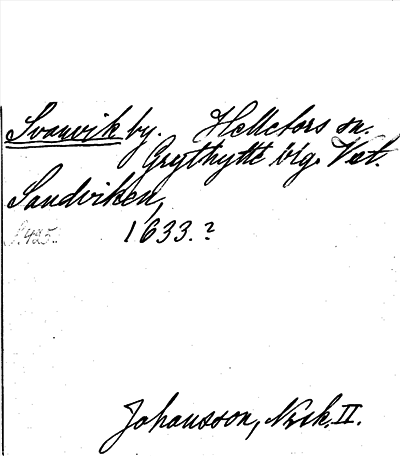 Svanvik by. Hellefors sn.
Grythytte blg. Vst.
Sandviken,
1633.?
Johansson, Norsk. II.